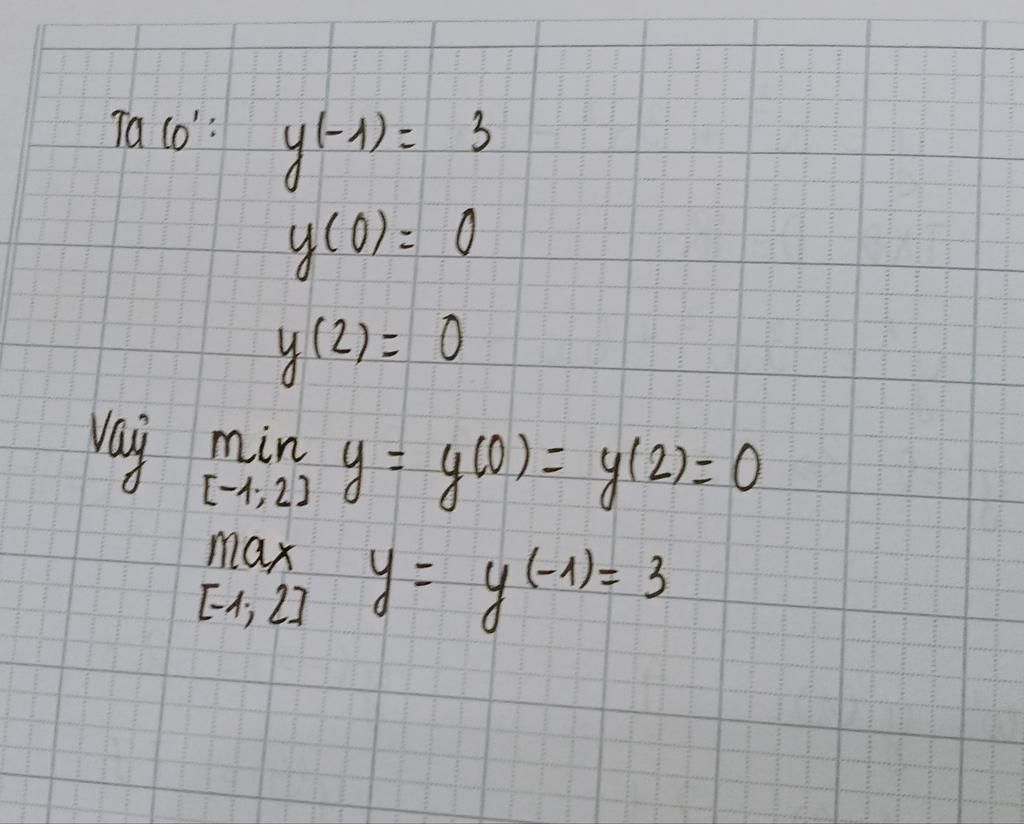 Ta có: y(-1) = 3
y(0) = 0
y(2) = 0
Vậy min y = y(0) = y(2) = 0
[-1; 2]
max y = y(-1) = 3
[-1; 2]